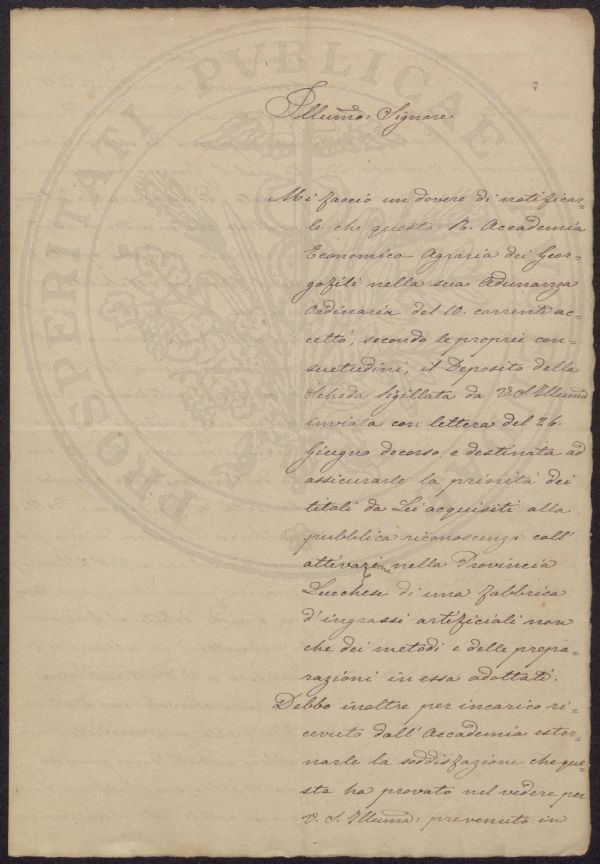 Illumo: Signore
Mi faccio un dovere di notificar=
le che questa R. Accademia
Economico-Agraria dei Geor=
gofili nella sua Adunanza
Ordinaria del 10. corrente ac=
cettò, secondo le proprie con=
suetudini, il Deposito della
Scheda Sigillata da V. S. Illuma
inviata con lettera del 26.
Giugno decorso, e destinata ad
assicurarle la priorità dei
titoli da Lei acquisiti alla
pubblica riconoscenza coll'
attivazione nella Provincia
Lucchese di una fabbrica
d'ingrassi artificiali non
che dei metodi e delle prepa=
razioni in essa adottati.
Debbo inoltre per incarico ri=
cevuto dall'Accademia ester=
narle la soddisfazione che que
sta ha provato nel vedere per
V. S. Illuma: prevenuto in
PROSPERITATI PVBLICAE